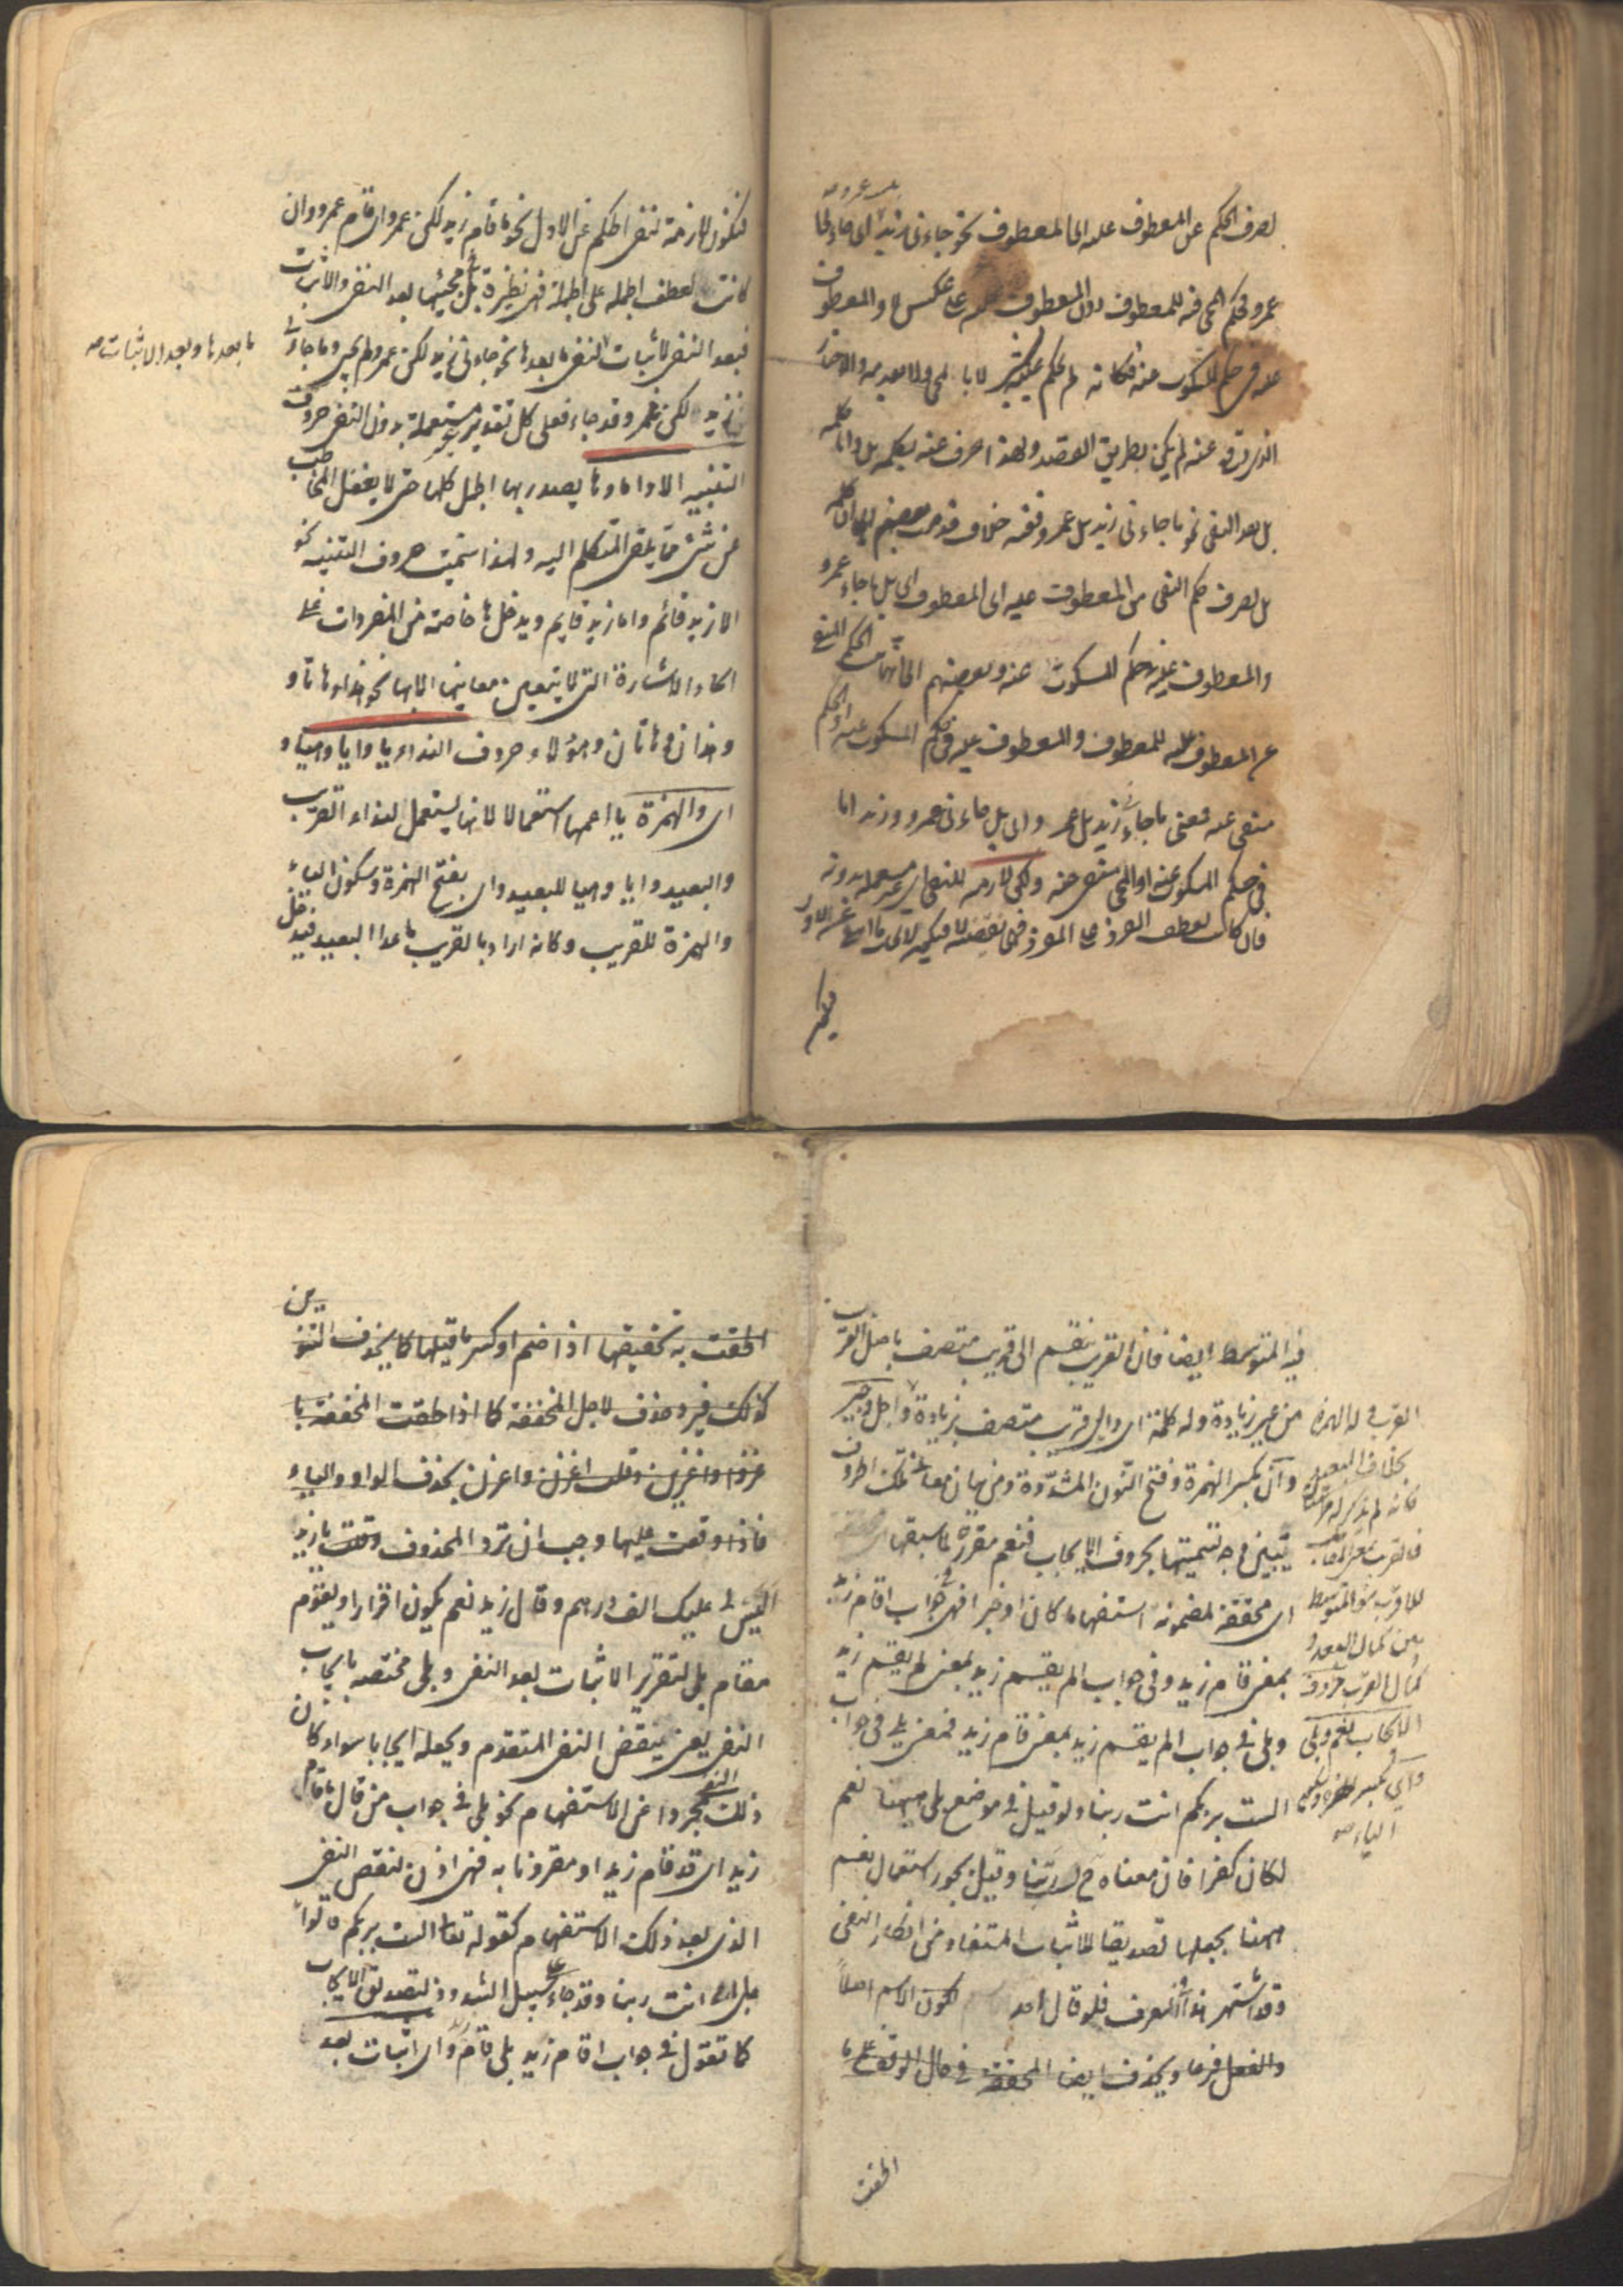 بل عمرو صح
لصرف الحكم عن المعطوف عليه الى المعطوف نحو جاءنى زيد اى ما جاء
عمرو فحكم المجئ فيه للمعطوف دون المعطوف عليه على عكس لا والمعطوف
عليه فى حكم المسكوت عنه فكانه لم يحكم عليه بشئ لا بالمجئ ولا بعدمه والاخبار
الذى وقع عنه لم يكن بطريق القصد ولهذا صرف عنه بكلمة بل واما كلمة
بل بعد النفى نحو ما جاءنى زيد بل عمرو ففيه خلاف فذهب بعضهم الى ان كلمة
بل لصرف حكم النفى من المعطوف عليه الى المعطوف اى بل ما جاء عمرو
والمعطوف عليه فى حكم المسكوت عنه وبعضهم الى انها تثبت الحكم المنفى
عن المعطوف عليه للمعطوف والمعطوف عليه فى حكم المسكوت عنه او الحكم
منفى عنه فمعنى ما جاءنى زيد بل عمرو اى بل جاءنى عمرو وزيد اما
فى حكم المسكوت عنه او المجئ منتف عنه ولكن لازمة للنفى اى غير مستعملة بدونه
فان كانت لعطف المفرد على المفرد فهى نقيضة لا فيكون لايجاب ما انتفى عن الاول
فيكون
فتكون لازمة لنفى الحكم عن الاول نحو ما قام زيد لكن عمرو اى قام عمرو وان
كانت لعطف الجملة على الجملة فهى نظيرة بل فى مجيئها بعد النفى والاثبات
فبعد النفى لاثبات النفى ما بعدها نحو جاءنى زيد لكن عمرو لم يجئ وما جاءنى
ما بعدها وبعد الاثبات صح
زيد لكن عمرو قد جاء فعلى كل تقدير غير مستعملة بدون النفى حروف
التنبيه الا واما وها يصدر بها الجمل كلها حتى لا يغفل المخاطب
عن شئ مما يلقى المتكلم اليه ولهذا سميت حروف التنبيه نحو
الا زيد قائم واما زيد قايم ويدخل ها خاصة من المفردات على
اسماء الاشارة التى لا يتعين معانيها الا بها نحو هذا وهاتا و
وهذان وهاتان وهؤلاء وحروف النداء يا وايا وهيا و
اى والهمزة يا اعمها استعمالا لانها يستعمل لنداء القريب
والبعيد وايا وهيا للبعيد واى بفتح الهمزة وسكون الياء
والهمزة للقريب وكانه اراد بالقريب ما عدا البعيد فيدخل
فيه المتوسط ايضا فان القريب ينقسم الى قريب متصف باصل القرب
من غير زيادة وله كلمة اى والى قريب متصف بزيادة واجل وجير
وان بكسر الهمزة وفتح النون المشددة ومن بيان معانى تلك الحروف
يتبين وجه تسميتها بحروف الايجاب فنعم مقررة لما سبقها اى محققة
اى محققة لمضمونه استفهاما كان او خبرا فهى فى جواب اقام زيد
بمعنى قام زيد وفى جواب الم يقم زيد بمعنى لم يقم زيد
وبلى فى جواب الم يقم زيد بمعنى قام زيد فمعنى بلى فى جواب
الست بربكم انت ربنا ولو قيل فى موضع بلى ههنا نعم
لكان كفرا فان معناه ح لست ربنا وقيل يجوز استعمال نعم
ههنا بجعلها تصديقا للاثبات المستفاد من انكار النفى
وقد اشتهر هذا فى العرف فلو قال احد لكون الاسم اصلا
والفعل فرعا ويحذف ايضا المخففة فى حال الوقف على ما
القرب وله الهمزة
بخلاف البعيد
فانه لم يذكر له مرتبتان
فالقريب بمعنى المقابل
للاقرب هو المتوسط
بين كمال البعد و
كمال القرب حروف
الايجاب نعم وبلى
واى بكسر الهمزة وسكون
الياء صح
الحقت
الحقت به تخفيفها اذا ضم او كسر ما قبلها كما يحذف التنوين
كذلك فيرد ما حذف لاجل المخففة كما اذا لحقت المخففة با
غزوا واغزى وقلت اغزن واغزن بحذف الواو والياء
فاذا وقفت عليها وجب ان ترد المحذوف وقلت يا زيد
اليس لى عليك الف درهم وقال زيد نعم يكون اقرارا ويقوم
مقام بلى لتقرير الاثبات بعد النفى وبلى مختصة بايجاب
النفى يعنى ينقض النفى المتقدم ويجعله ايجابا سواء كان
ذلك النفى مجردا عن الاستفهام نحو بلى فى جواب من قال ما قام
زيد اى قد قام زيد او مقرونا به فهى اذن لنقض النفى
الذى بعد ذلك الاستفهام كقوله تعالى الست بربكم قالوا
بلى اى انت ربنا وقد جاء على سبيل الشذوذ لتصديق الايجاب
كما تقول فى جواب اقام زيد بلى قام زيد واى اثبات بعد